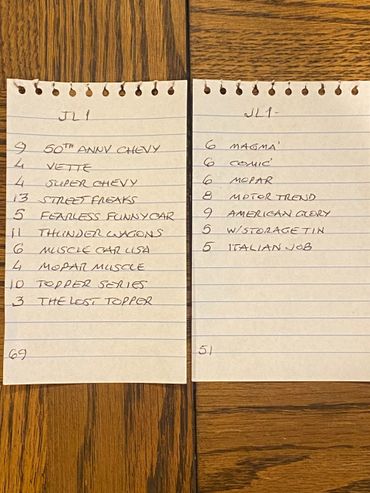 JL1
9 50TH ANNV CHEVY
4 VETTE
4 SUPER CHEVY
13 STREET FREAKS
5 FEARLESS FUNNYCAR
11 THUNDER WAGONS
6 MUSCLE CAR USA
4 MOPAR MUSCLE
10 TOPPER SERIES
3 THE LOST TOPPER
69
JL1-
6 MAGMA'
6 COMIC'
6 MOPAR
8 MOTOR TREND
9 AMERICAN GLORY
5 W/STORAGE TIN
5 ITALIAN JOB
51